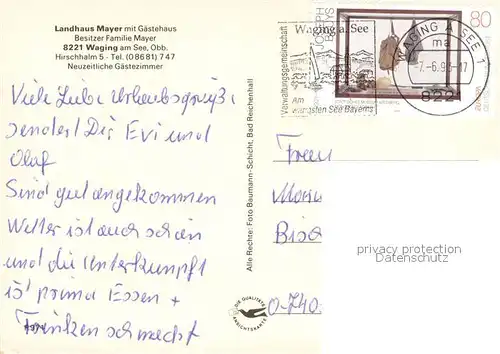 Landhaus Mayer mit Gästehaus
Besitzer Familie Mayer
8221 Waging am See, Obb.
Hirschhalm 5 · Tel. (08681) 747
Neuzeitliche Gästezimmer
Viele Liebe Urlaubsgrüße
sendet Dir Evi und
Olaf
Sind gut angekommen
Wetter ist auch schön
und die Unterkunft
ist prima Essen +
Trinken schmeckt
Alle Rechte: Foto Baumann-Schicht, Bad Reichenhall
DIE QUALITÄTS
ANSICHTSKARTE
Verwaltungsgemeinschaft
Waging a. See
Am
wärmsten See Bayerns
JOSEPH
BEUYS
80
WAGING A SEE 1
ma
-7.-6.93-17
822
Frau
Bisc
O-740
privacy protection
Datenschutz